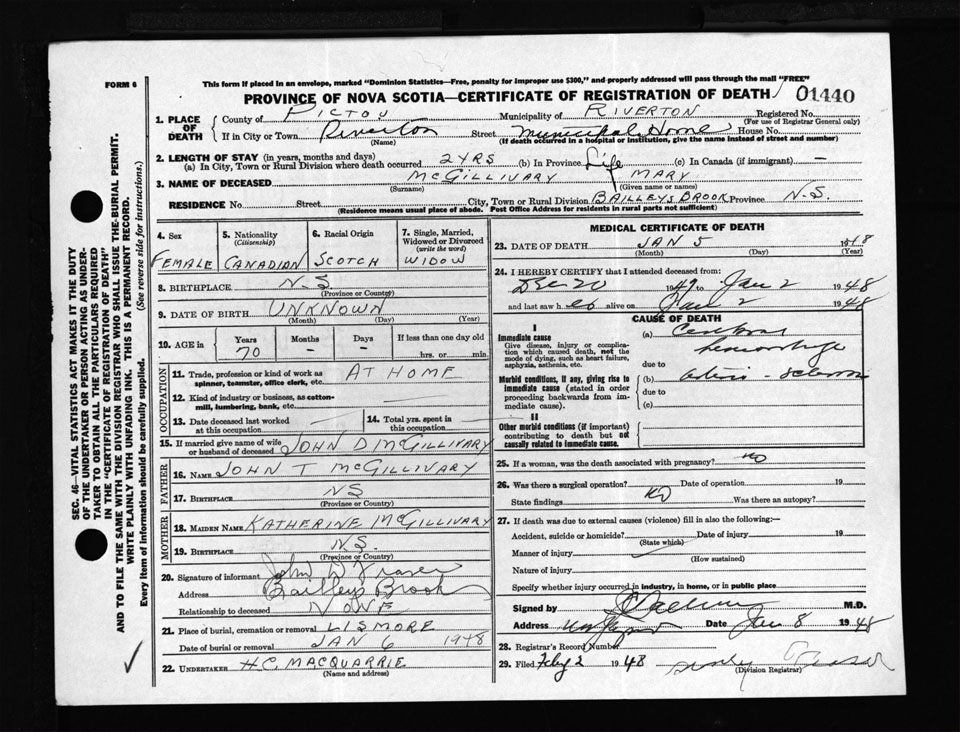 FORM 6
This form if placed in an envelope, marked "Dominion Statistics—Free, penalty for improper use $300," and properly addressed will pass through the mail "FREE"
PROVINCE OF NOVA SCOTIA—CERTIFICATE OF REGISTRATION OF DEATH 01440
1. PLACE OF DEATH
County of PICTOU Municipality of RIVERTON Registered No.
(For use of Registrar General only)
If in City or Town Riverton Street Municipal Home House No.
(Name) (If death occurred in a hospital or institution, give the name instead of street and number)
2. LENGTH OF STAY (in years, months and days)
(a) In City, Town or Rural Division where death occurred 2 YRS (b) In Province Life (c) In Canada (if immigrant) —
3. NAME OF DECEASED MCGILLIVARY MARY
(Surname) (Given name or names)
RESIDENCE No. Street City, Town or Rural Division BAILLEYS BROOK Province N.S.
(Residence means usual place of abode. Post Office Address for residents in rural parts not sufficient)
4. Sex
FEMALE
5. Nationality (Citizenship)
CANADIAN
6. Racial Origin
SCOTCH
7. Single, Married, Widowed or Divorced (write the word)
WIDOW
8. BIRTHPLACE N.S.
(Province or Country)
9. DATE OF BIRTH UNKNOWN
(Month) (Day) (Year)
10. AGE in Years Months Days If less than one day old
70 — — hrs. or min.
OCCUPATION
11. Trade, profession or kind of work as spinner, teamster, office clerk, etc. AT HOME
12. Kind of industry or business, as cotton-mill, lumbering, bank, etc.
13. Date deceased last worked at this occupation
14. Total yrs. spent in this occupation
15. If married give name of wife or husband of deceased JOHN D MCGILLIVARY
FATHER
16. NAME JOHN T MCGILLIVARY
17. BIRTHPLACE NS
(Province or Country)
MOTHER
18. MAIDEN NAME KATHERINE MCGILLIVARY
19. BIRTHPLACE N.S.
(Province or Country)
20. Signature of informant John D Fraser
Address Bailleys Brook
Relationship to deceased NONE
21. Place of burial, cremation or removal LISMORE
Date of burial or removal JAN 6 1948
22. UNDERTAKER H.C. MACQUARRIE
(Name and address)
MEDICAL CERTIFICATE OF DEATH
23. DATE OF DEATH JAN 5 1948
(Month) (Day) (Year)
24. I HEREBY CERTIFY that I attended deceased from:
Dec 20 1947 to Jan 2 1948
and last saw her alive on Jan 2 1948
CAUSE OF DEATH
I
Give disease, injury or complication which caused death, not the mode of dying, such as heart failure, asphyxia, asthenia, etc.
(a) Cerebral
hemorrhage
due to
Morbid conditions, if any, giving rise to immediate cause (stated in order proceeding backwards from immediate cause).
(b) arterio-sclerosis
due to
(c)
II
Other morbid conditions (if important) contributing to death but not causally related to immediate cause.
25. If a woman, was the death associated with pregnancy? No
26. Was there a surgical operation? Date of operation 19
State findings No Was there an autopsy?
27. If death was due to external causes (violence) fill in also the following:—
Accident, suicide or homicide? Date of injury 19
(State which)
Manner of injury
(How sustained)
Nature of injury
Specify whether injury occurred in industry, in home, or in public place
Signed by M.D.
Address Date Jan 8 1948
28. Registrar's Record Number
29. Filed Feby 2 1948
(Division Registrar)
SEC. 46—VITAL STATISTICS ACT MAKES IT THE DUTY
OF THE UNDERTAKER OR PERSON ACTING AS UNDER-
TAKER TO OBTAIN ALL THE PARTICULARS REQUIRED
IN THE "CERTIFICATE OF REGISTRATION OF DEATH"
AND TO FILE THE SAME WITH THE DIVISION REGISTRAR WHO SHALL ISSUE THE BURIAL PERMIT.
WRITE PLAINLY WITH UNFADING INK. THIS IS A PERMANENT RECORD.
Every item of information should be carefully supplied. (See reverse side for instructions.)